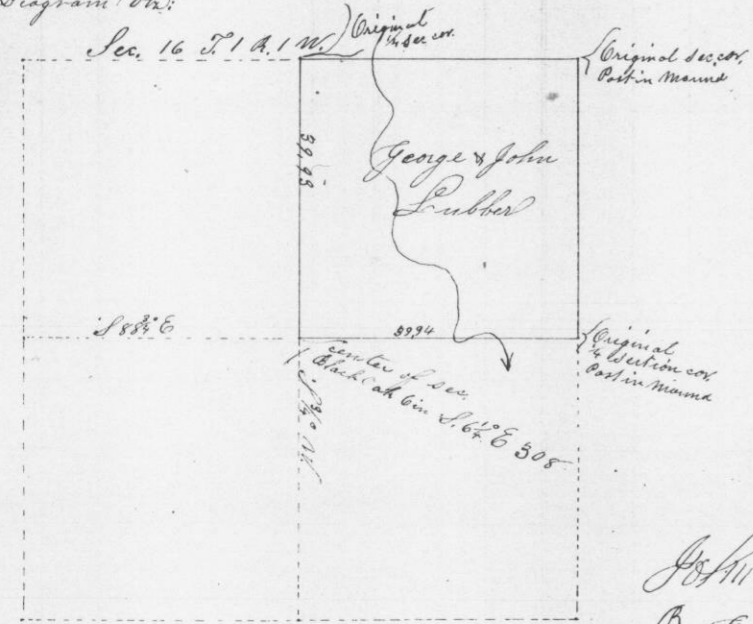 Diagram Viz:
Sec. 16 T. 1 R. 1 W.
Original
¼ sec cor.
Original sec cor.
Post in Mound
39,93
George & John
Lubber
S 88¾° E
3994
Original
¼ section cor.
Post in Mound
center of sec.
Black Oak 6 in S. 61½° E 308
John
B